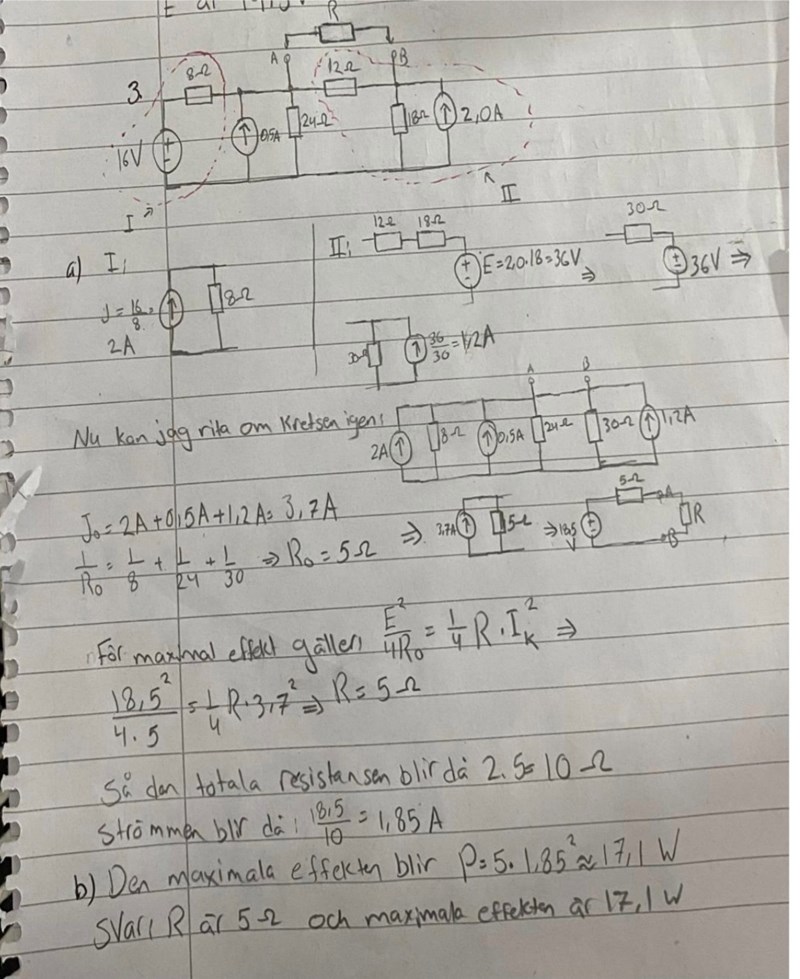 R
A
B
3.
8Ω
12Ω
16V
0,5A
24Ω
18Ω
2,0A
I
II
a) I:
J = 16/8 =
2A
8Ω
II:
12Ω 18Ω
E = 2,0·18 = 36V
⇒
30Ω
36V ⇒
30Ω
36/30 = 1,2A
Nu kan jag rita om kretsen igen:
2A 8Ω 0,5A A 24Ω B 30Ω 1,2A
J₀ = 2A + 0,5A + 1,2A = 3,7A
1/R₀ = 1/8 + 1/24 + 1/30 ⇒ R₀ = 5Ω
⇒ 3,7A 5Ω ⇒ 18,5 V 5Ω A R B
För maximal effekt gäller: E²/4R₀ = 1/4 R · I_K² ⇒
18,5²/4·5 = 1/4 R · 3,7² ⇒ R = 5Ω
Så den totala resistansen blir då 2·5 = 10 Ω
Strömmen blir då: 18,5/10 = 1,85 A
b) Den maximala effekten blir P = 5·1,85² ≈ 17,1 W
Svar: R är 5Ω och maximala effekten är 17,1 W